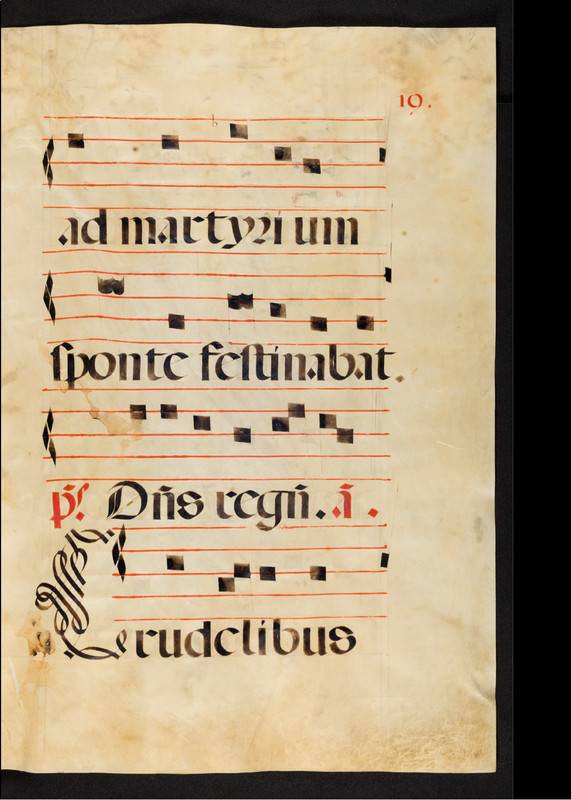 19.
ad martyri um
sponte festinabat.
p̄s. Dn̄s regn̄. ā.
Crudelibus